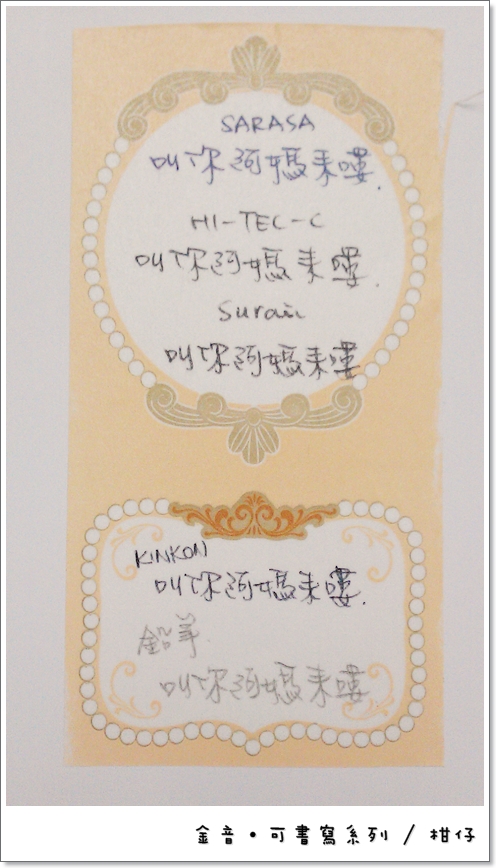 SARASA
叫你阿媽來嘍.
HI-TEC-C
叫你阿媽來嘍.
Surari
叫你阿媽來嘍
KINKON
叫你阿媽來嘍.
鉛筆.
叫你阿媽來嘍
金音•可書寫系列 / 柑仔